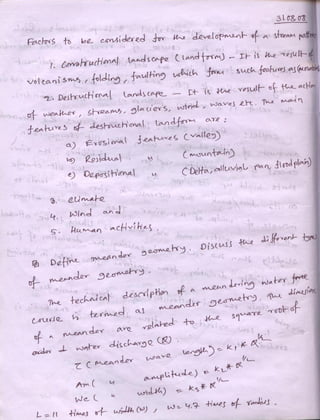 31.08.08
Factors to be considered for the development of a stream pattern
1. Constructional landscape (landform) - It is the result of
volcanisms, folding, faulting which form such features as
2. Destructional landscape - It is the result of the action
of weather, streams, glaciers, wind, waves etc. The main
features of destructional landform are:
a) Erosional features (valley)
b) Residual " (mountain)
c) Depositional " (Delta, alluvial fan, floodplain)
3. climate
4. Wind and
5. Human activities.
Define meander geometry. Discuss the different type
of meander geometry.
The technical description of a meandering water
course is termed as meander geometry. The dimension
of a meander are related to the square root of
water discharge (Q)
(Meander wave length) = K₁ * Q^½
Am ( " amplitude) = K₂ * Q^½
We ( " width) = K₃ * Q^½
L = 11 times of width (w), W = 4.7 times of radius.